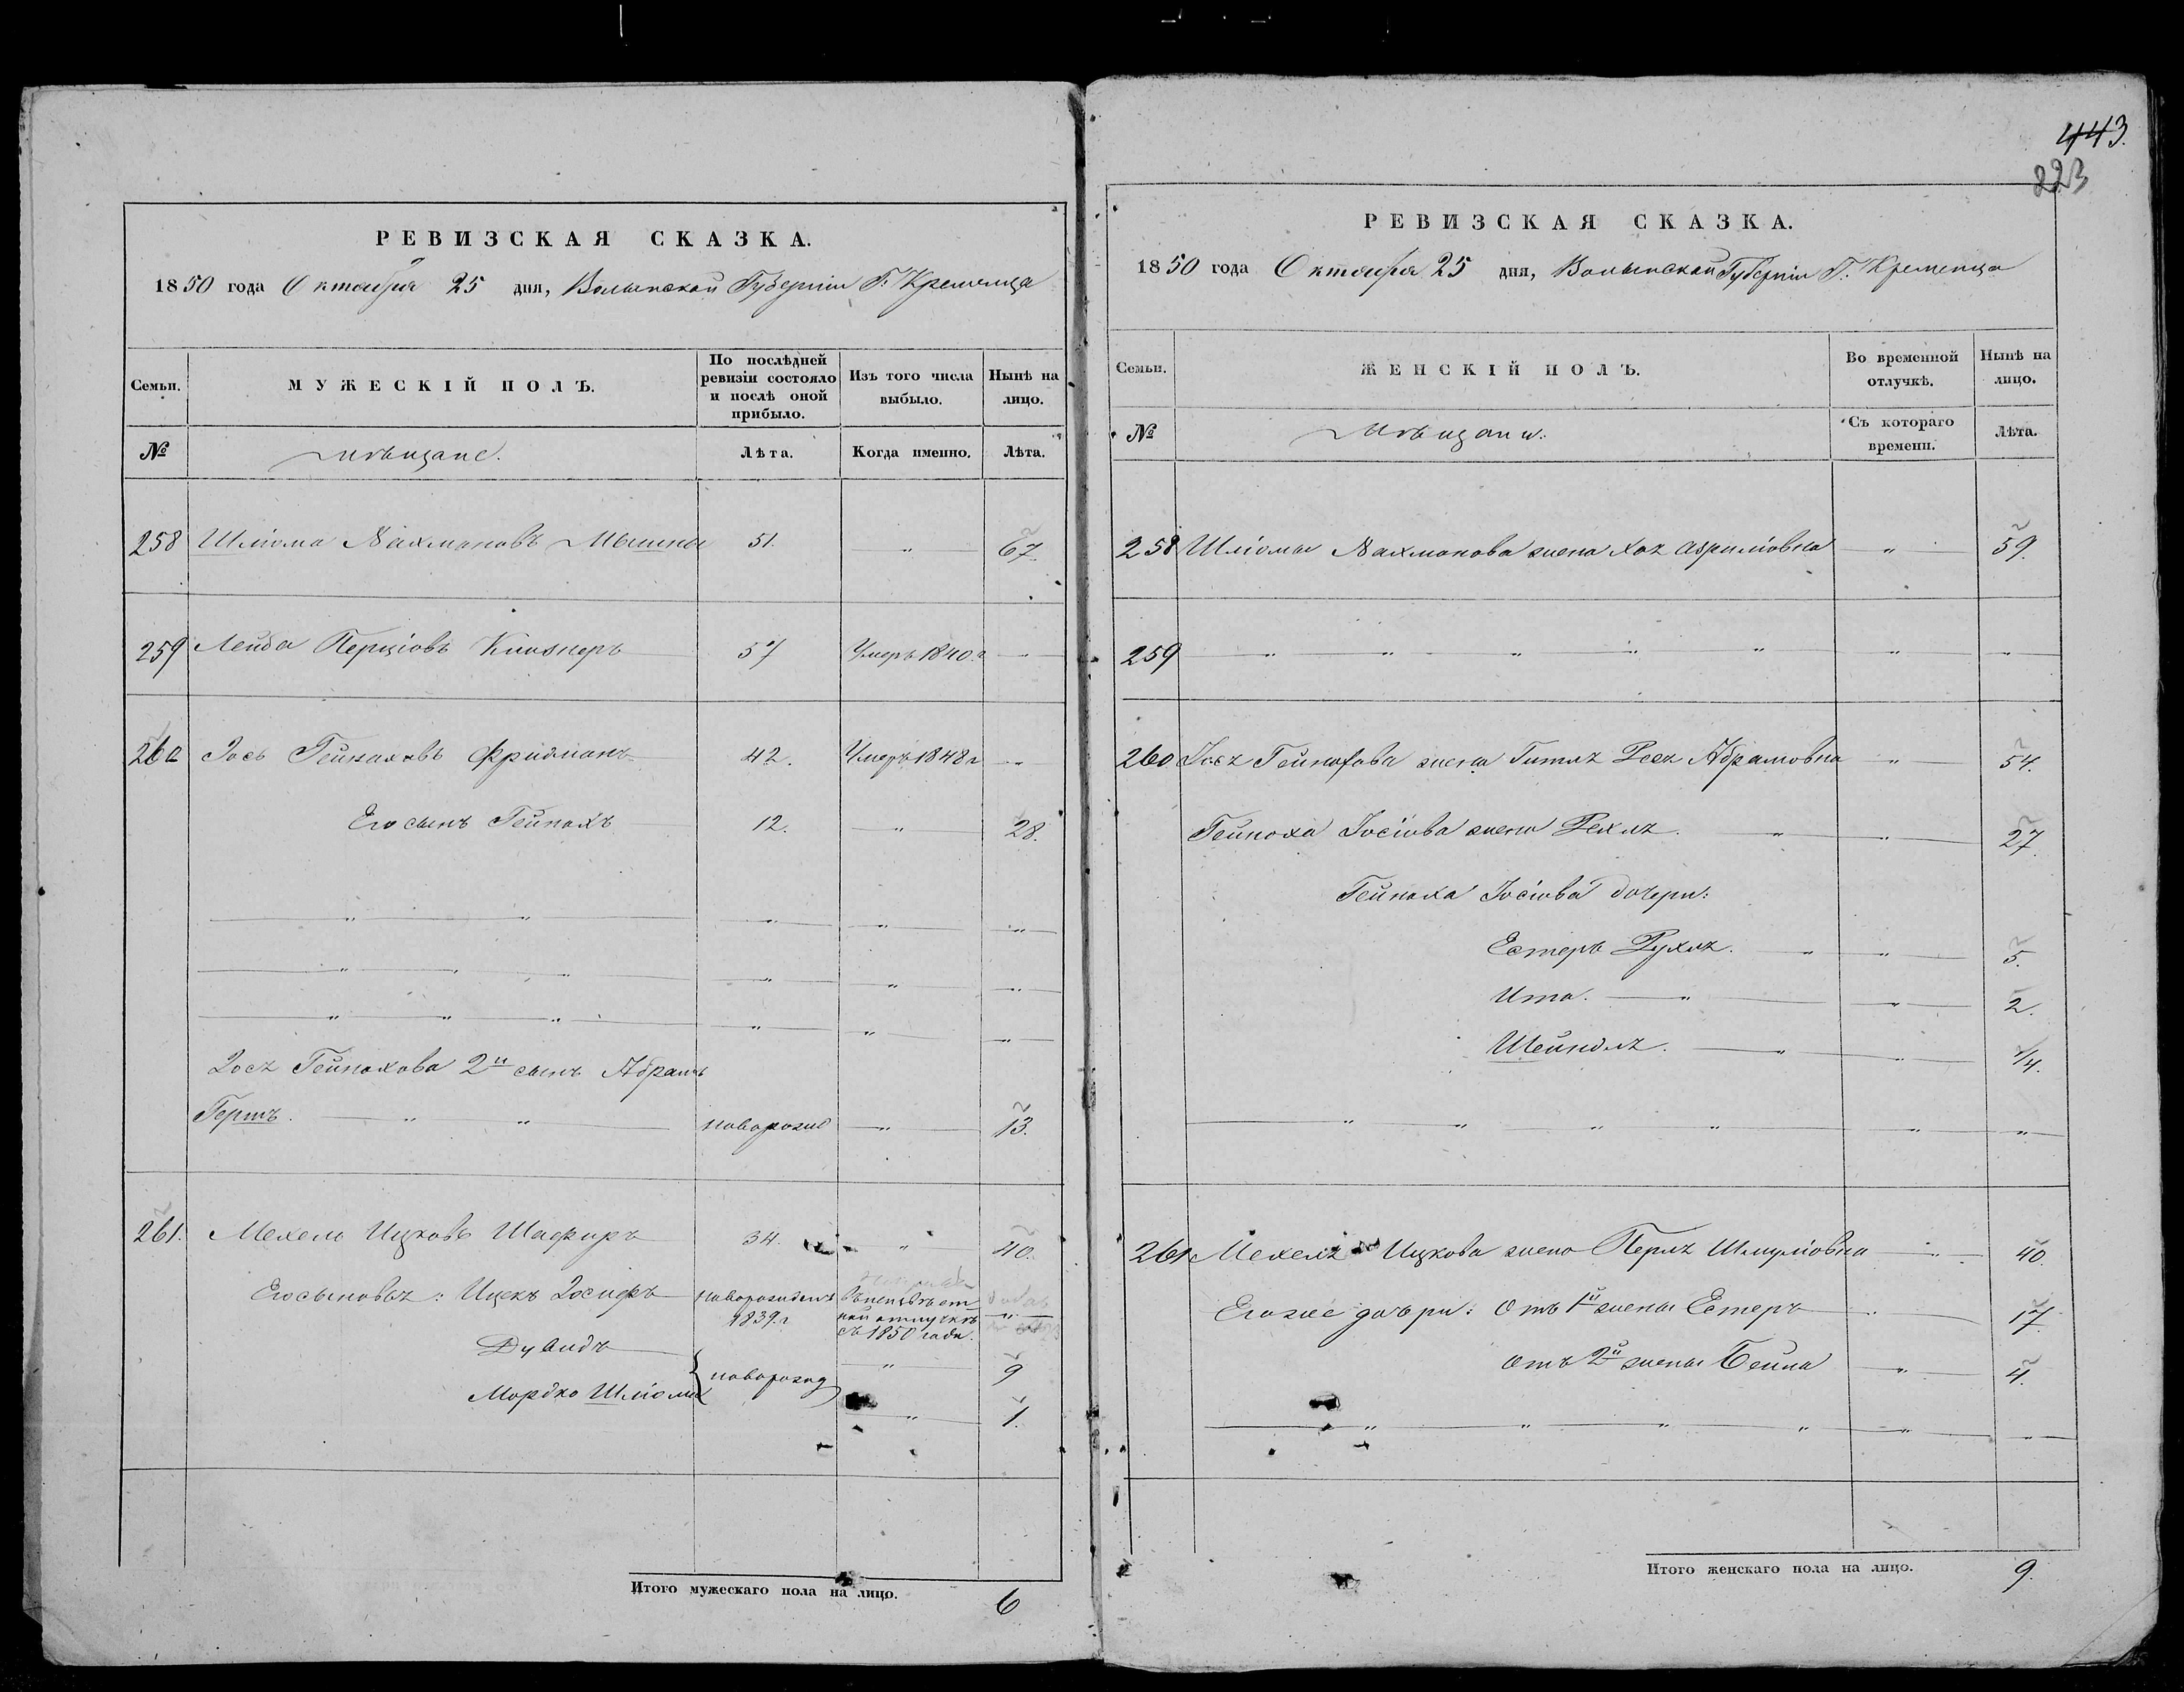 РЕВИЗСКАЯ СКАЗКА.
1850 года Октября 25 дня, Волынской Губерніи Г. Кременца
Семьи.
МУЖЕСКІЙ ПОЛЪ.
По послѣдней ревизіи состояло и послѣ оной прибыло.
Изъ того числа выбыло.
Нынѣ на лицо.
№
Мѣщане.
Лѣта.
Когда именно.
Лѣта.
258 Шліома Нахмановъ 51. " 67.
259 Лейба Перціовъ 57 Умеръ 1840 г "
260 Іось Гейноховъ Фридманъ 42. Умеръ 1848 г "
Его сынъ Гейнохъ 12. " 28.
" " " " "
" " " " " "
" " " " " "
Гейнохова 2й сынъ Абрамъ
Гершъ. " " новорожд " 13.
261. Мехель Ицковъ Шафиръ 34. " 40.
Его сыновья: Ицекъ новорожденъ
1839 г
съ 1850 года.
"
Дувидъ " 9
новорожд
Мордко Шліома " 1.
Итого мужескаго пола на лицо. 6
443.
223
РЕВИЗСКАЯ СКАЗКА.
1850 года Октября 25 дня, Волынской Губерніи Г. Кременца
Семьи.
ЖЕНСКІЙ ПОЛЪ.
Во временной отлучкѣ.
Нынѣ на лицо.
№
Мѣщане.
Съ котораго времени.
Лѣта.
258 Шліомы Нахманова жена Хая " 59.
259 " " " " " " "
260 Гейнохова жена Гитля Рейзя Абрамовна " 54.
Гейноха Іосіова жена Рехля. " " 27.
Гейноха Іосіова дочери:
Естеръ Рухля. " " 5.
Ита. " " 2.
Шейндля. " " 1/4.
" " " " " "
261 Мехеля Ицкова жена Перля Шмуліовна " 40.
Его же дочери: отъ 1й жены Естеръ " 17.
отъ 2й жены Бейла " 4.
" " " " " "
Итого женскаго пола на лицо. 9.